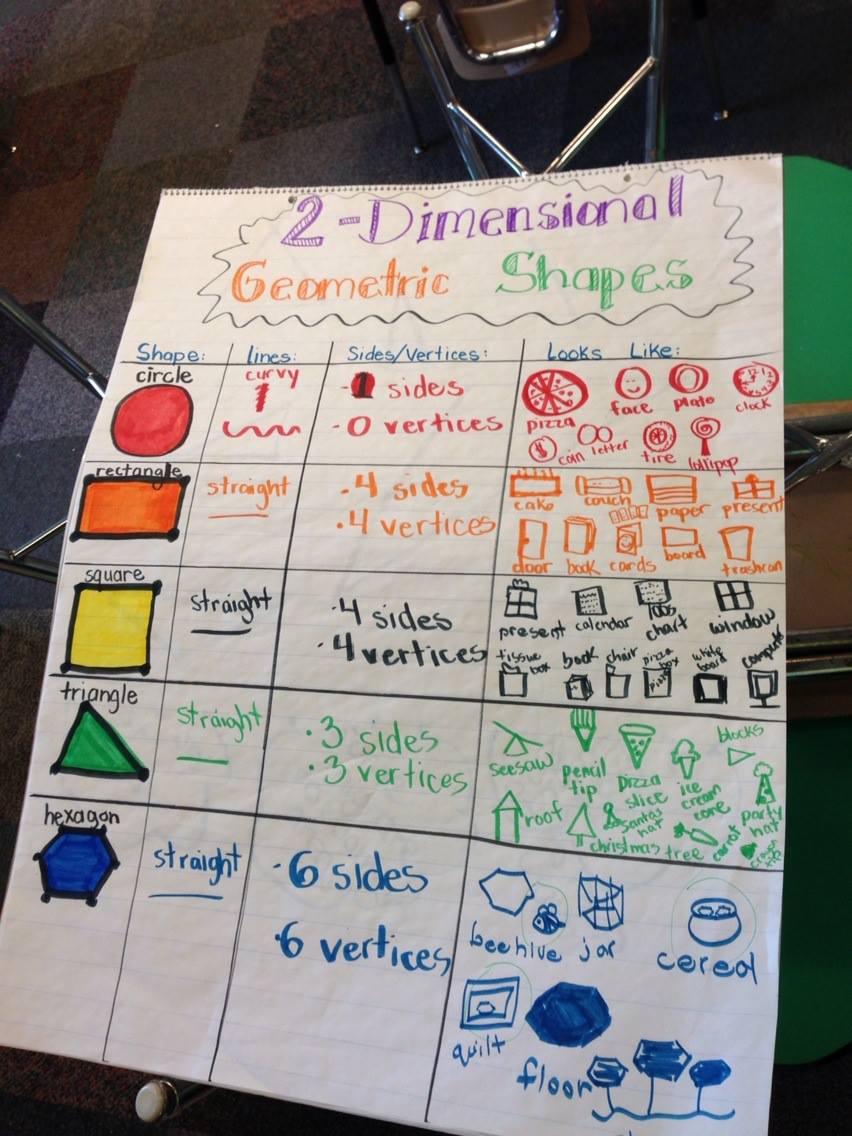 2-Dimensional
Geometric Shapes
Shape: lines: Sides/Vertices: Looks Like:
circle
curvy
- 1 sides
- 0 vertices
pizza face plate clock
coin letter tire lollipop
rectangle
straight
·4 sides
·4 vertices
cake couch paper present
door book cards board trashcan
square
straight
·4 sides
·4 vertices
present calendar 100s chart window
tissue box book chair pizza box white board computer
triangle
straight
·3 sides
·3 vertices
seesaw pencil tip pizza slice ice cream cone blocks
roof christmas tree santas hat carrot party hat
hexagon
straight
·6 sides
·6 vertices
beehive jar cereal
quilt
floor